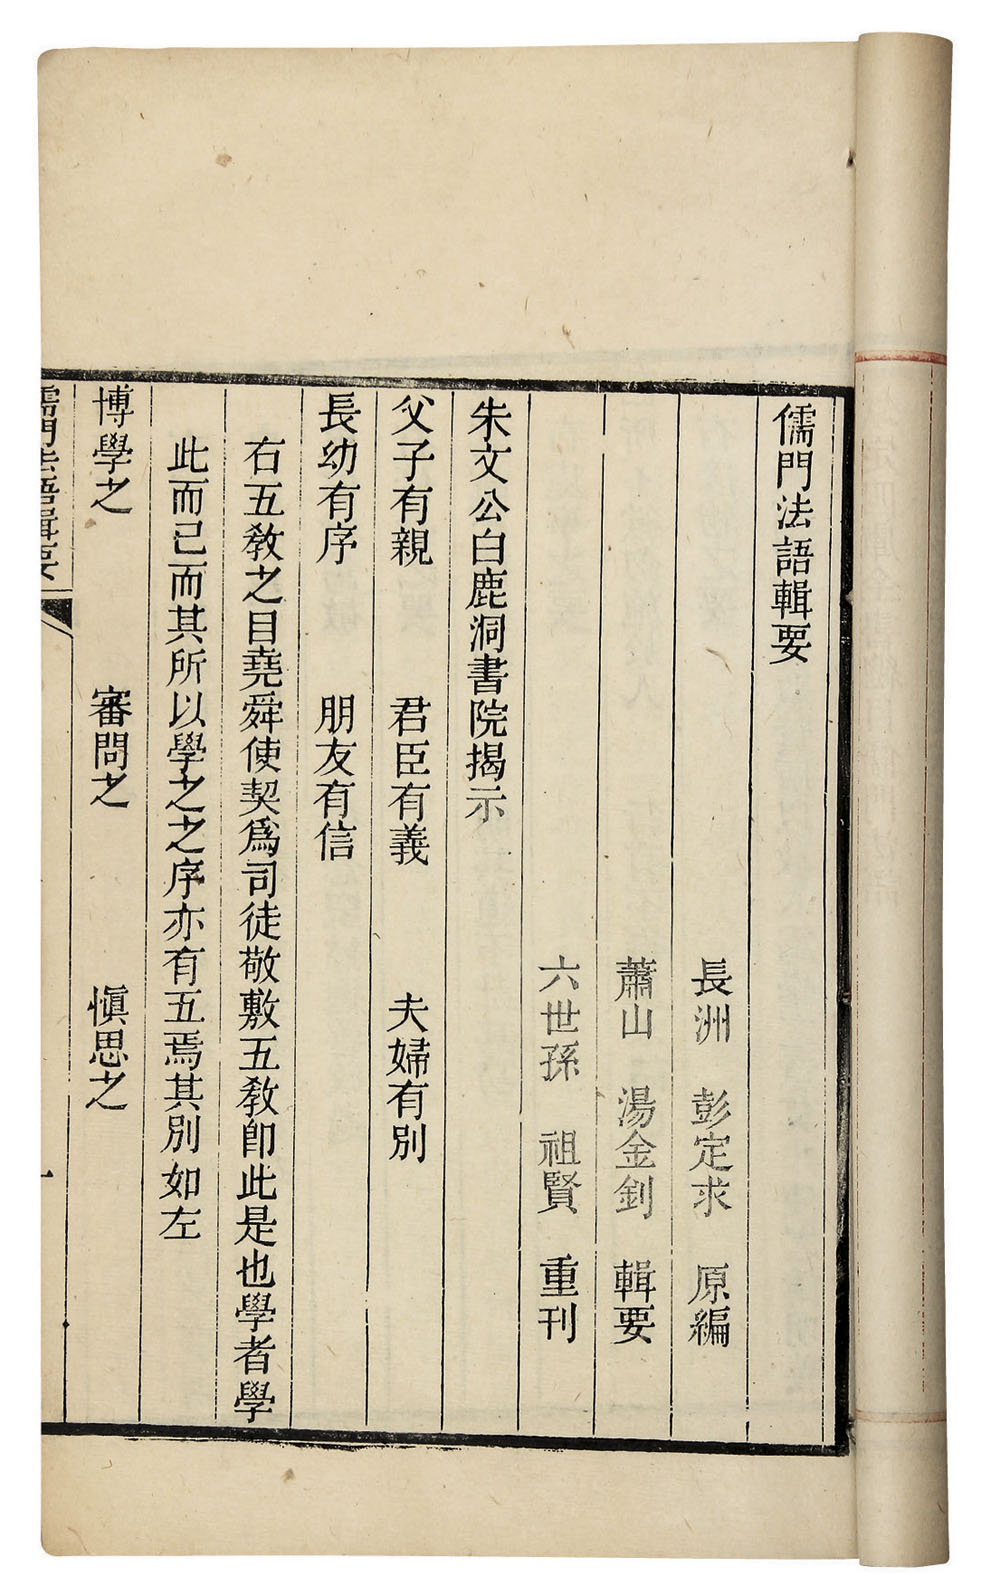 儒門法語輯要
長洲 彭定求 原編
蕭山 湯金釗 輯要
六世孫 祖賢 重刊
朱文公白鹿洞書院揭示
父子有親 君臣有義 夫婦有別
長幼有序 朋友有信
右五教之目堯舜使契爲司徒敬敷五教即此是也學者學
此而已而其所以學之之序亦有五焉其別如左
博學之 審問之 慎思之
儒門法語輯要
一